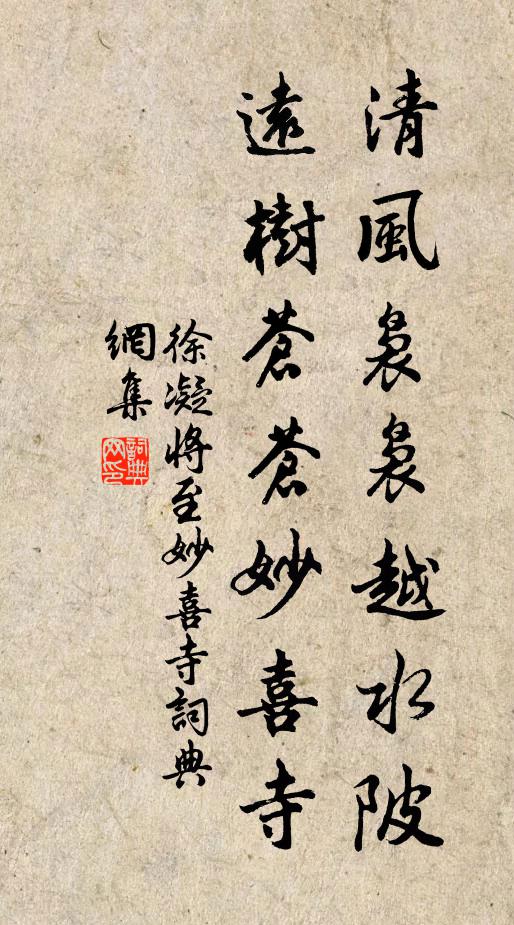 清風裊裊越水陂
遠樹蒼蒼妙喜寺
徐凝將至妙喜寺詞典
網集
詞典
網印